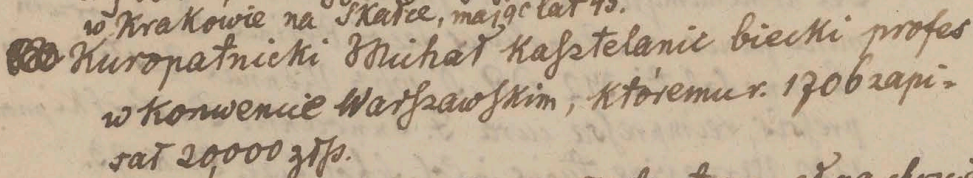 w Krakowie na Skałce, mając lat 45.
Kuropatnicki Michał Kasztelanic biecki profes
w Konwencie Warszawskim, któremu r. 1706 zapi-
sał 20,000 złp.